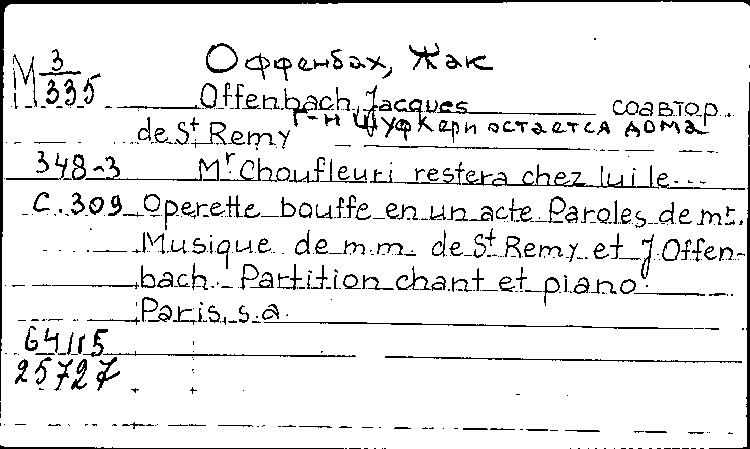 М 3/335 Оффенбах, Жак
Offenbach, Jacques соавтор
de St Remy Г-н Шуфлери остается дома
348-3 Mr Choufleuri restera chez lui le...
С. 309 Operette bouffe en un acte. Paroles de mr.
Musique de m.m. de St Remy et J Offen-
bach. Partition chant et piano.
Paris, s.a.
64115
25727